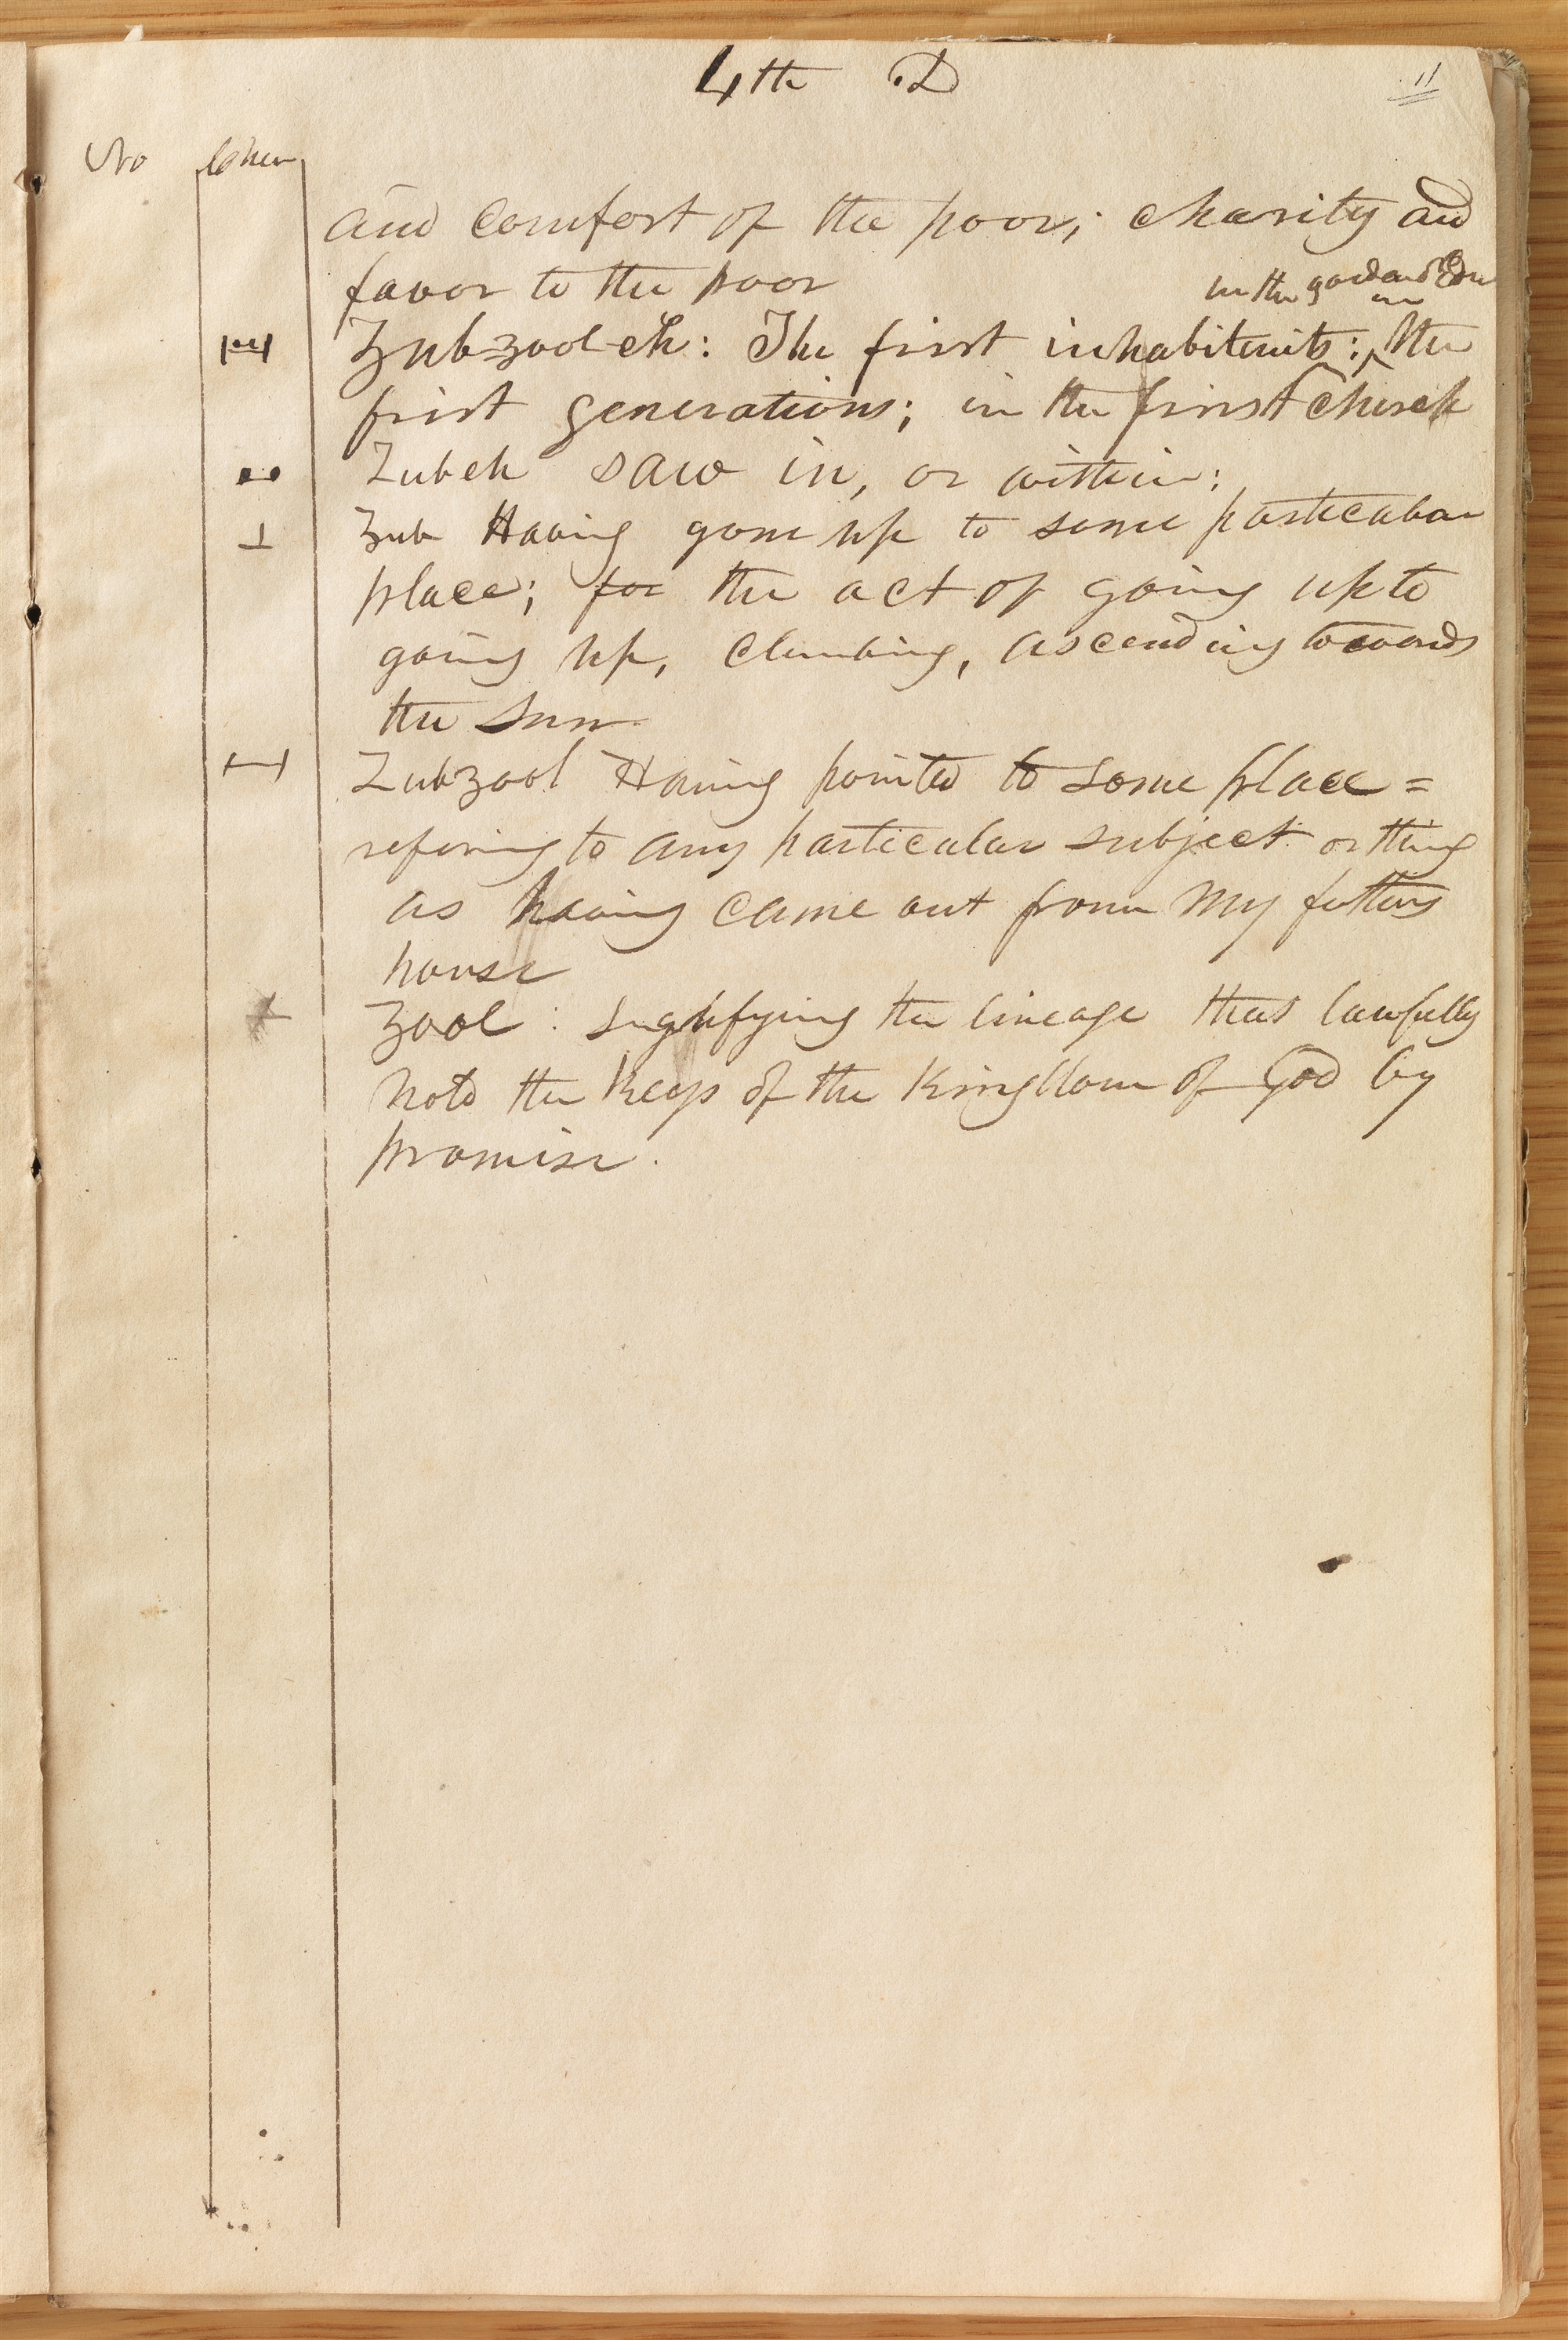 4th D
11
No Cher
and comfort of the poor; charity and
favor to the poor
in the garden of Eden
Zub zool-eh: The first inhabitents: in the
first generations; in the first Church
Zubeh saw in, or within:
Zub Having gone up to some particular
place; for the act of going up to
going up, climbing, ascending towards
the Sun
Zubzool Having pointed to some place =
refering to any particular subject or thing
as having came out from my fathers
house
Zool: Signifying the lineage that lawfully
hold the keys of the Kingdom of God by
promise.